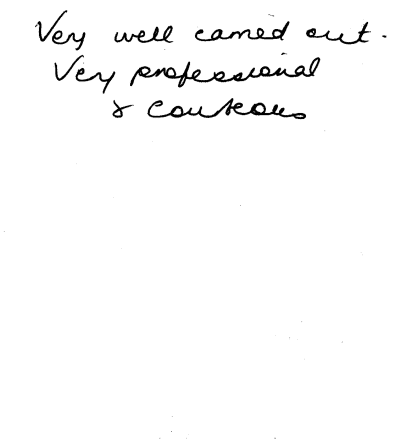 Very well carried out.
Very professional
& courteous